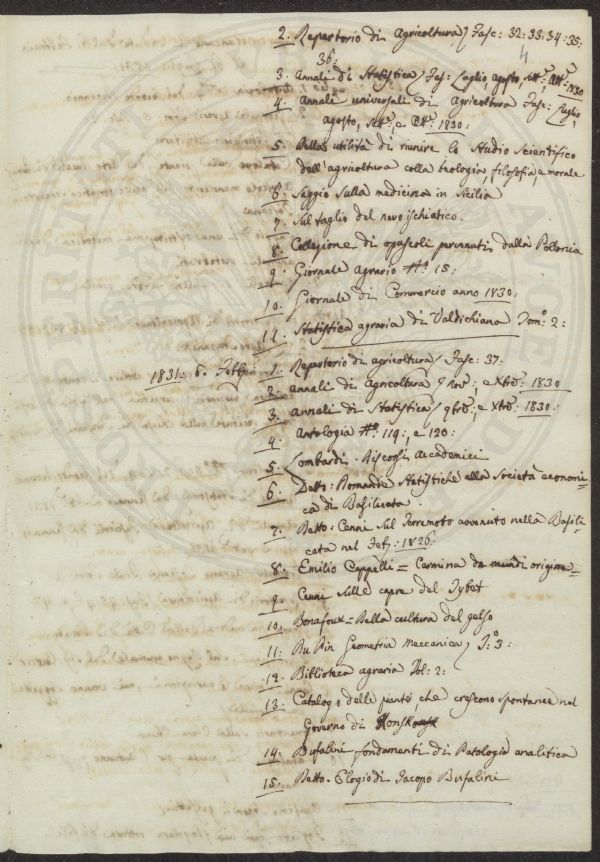 2. Repertorio di Agricoltura Fasc: 32: 33: 34: 35:
36:
4
3. Annali di Statistica Fas: Luglio, agosto, Sett.e, Ott.e 1830
4. Annali universali di Agricoltura Fasc: Luglio,
agosto, Sett.e, e Ott.e 1830:
5. Della utilità di riunire lo Studio Scientifico
dell'agricoltura colla teologia, filosofia, e morale
6. Saggio sulla medicina in Sicilia
7. Sul taglio del nervo ischiatico.
8. Collezione di opuscoli pervenuti dalla Polonia
9. Giornale Agrario N.o 15:
10. Giornale di Commercio anno 1830:
11. Statistica agraria di Valdichiana Tom.o 2:
1831: 6. Febb.o
1. Repertorio di agricoltura Fasc: 37:
2. Annali di Agricoltura 9bre: e Xbre: 1830
3. Annali di Statistica 9bre:, e Xbre: 1830:
4. Antologia N.o 119:, e 120:
5. Lombardi. Discorsi Accademici
6. Detto: Domande Statistiche alla Società economi=
ca di Basilicata
7. Detto: Cenni sul Terremoto avvenuto nella Basili
cata nel Feb: 1826:
8. Emilio Cappelli = Carmina de mundi origine=
9. Cenni sulle capre del Tybet
10. Bonafoux = Della cultura del gelso
11. Du Pin Geometria Meccanica T.o 3:
12. Biblioteca agraria Vol: 2:
13. Catalogo delle piante, che crescono spontanee nel
Governo di
14. Bufalini fondamenti di Patologia analitica
15. Detto. Elogio di Jacopo Bufalini